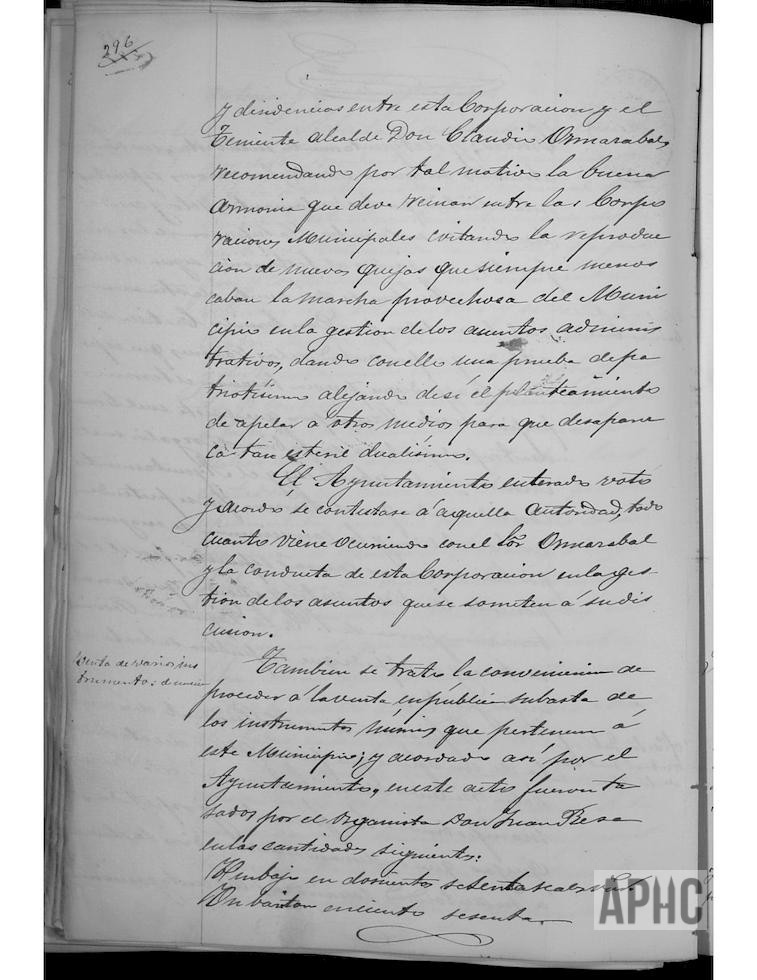 296
y disidencias entre esta Corporacion y el
Teniente Alcalde Don Claudio Ormazabal,
recomendando por tal motivo la buena
armonia que deve reinar entre las Corpo
raciones Municipales evitando la reproduc
cion de nuevas quejas que siempre menos
caban la marcha provechosa del Muni
cipio en la gestion de los asuntos adminis
trativos, dando con ello una prueba de pa
triotismo alejando de sí el planteamiento
de apelar a otros medios para que desapare
ca tan esteril dualismo.
El Ayuntamiento enterado votó
y acordó se contestase á aquella autoridad, todo
cuanto viene ocurriendo con el Sor Ormazabal
y la conducta de esta Corporacion en la ges
tion de los asuntos que se someten á su dis
cusion.
Venta de varios ins
trumentos de
Tambien se trató la conveniencia de
proceder á la venta en pública subasta de
los instrumentos que pertenecen á
este Municipio; y acordado así por el
Ayuntamiento, en este acto fueron ta
sados por el organista Don Juan
en las cantidades siguientes:
Un bajo en doscientos setenta reales
Un baritono en ciento sesenta.
APHC